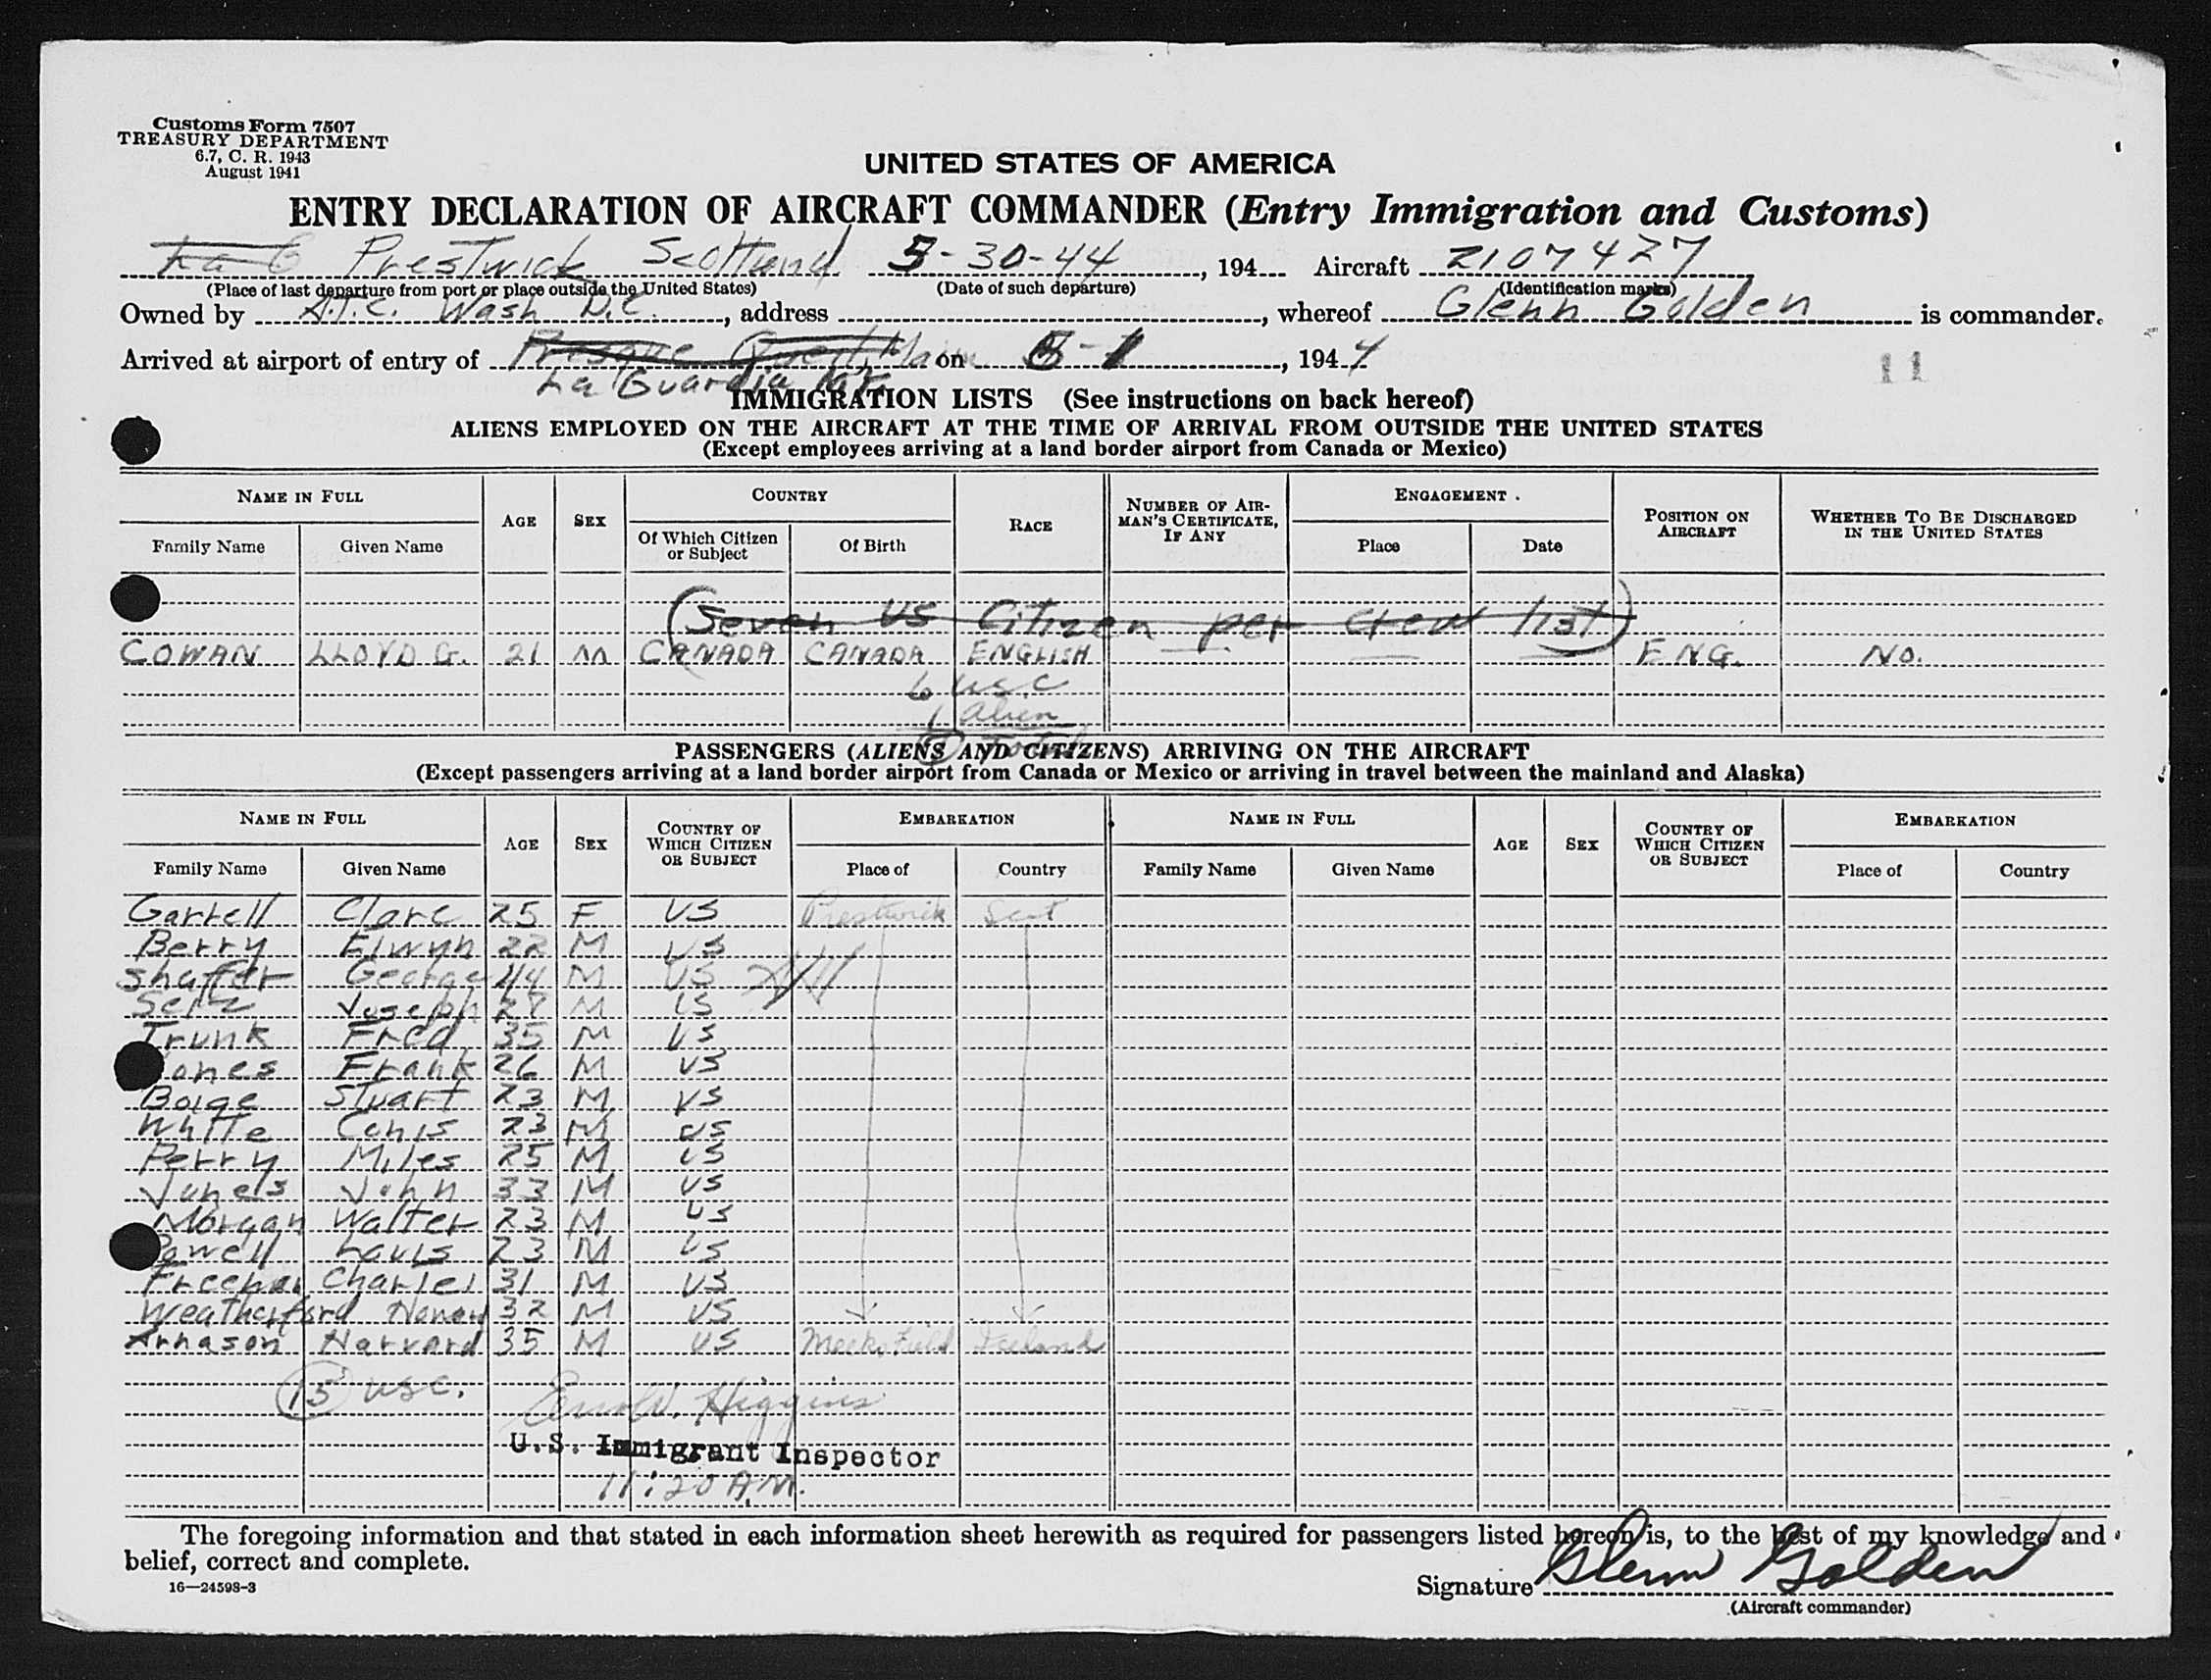 Customs Form 7507
TREASURY DEPARTMENT
6.7, C. R. 1943
August 1941
UNITED STATES OF AMERICA
ENTRY DECLARATION OF AIRCRAFT COMMANDER (Entry Immigration and Customs)
La G Prestwick Scotland 5-30-44, 194 Aircraft 2107427
(Place of last departure from port or place outside the United States) (Date of such departure) (Identification marks)
Owned by A.T.C. Wash D.C., address , whereof Glenn Golden is commander.
Arrived at airport of entry of Presque Maine on , 1944
La Guardia 11
IMMIGRATION LISTS (See instructions on back hereof)
ALIENS EMPLOYED ON THE AIRCRAFT AT THE TIME OF ARRIVAL FROM OUTSIDE THE UNITED STATES
(Except employees arriving at a land border airport from Canada or Mexico)
NAME IN FULL AGE SEX COUNTRY RACE NUMBER OF AIRMAN'S CERTIFICATE, IF ANY ENGAGEMENT POSITION ON AIRCRAFT WHETHER TO BE DISCHARGED IN THE UNITED STATES
Family Name Given Name Of Which Citizen or Subject Of Birth Place Date
(Seven US Citizen per crew list)
COWAN LLOYD G. 21 M CANADA CANADA ENGLISH ENG. NO.
6 USC
1 alien
Total
PASSENGERS (ALIENS AND CITIZENS) ARRIVING ON THE AIRCRAFT
(Except passengers arriving at a land border airport from Canada or Mexico or arriving in travel between the mainland and Alaska)
NAME IN FULL AGE SEX COUNTRY OF WHICH CITIZEN OR SUBJECT EMBARKATION NAME IN FULL AGE SEX COUNTRY OF WHICH CITIZEN OR SUBJECT EMBARKATION
Family Name Given Name Place of Country Family Name Given Name Place of Country
Garrell Clare 25 F US Prestwick Scot
Berry Elwyn 22 M US
Shaffer George 44 M US
Joseph M US
Trunk Fred 35 M US
ones Frank 26 M US
Boige Stuart 23 M US
White 23 M US
Perry Miles 25 M US
John 33 M US
Morgan Walter 23 M US
owell Louis 23 M US
Charles 31 M US
Weatherford 32 M US
Arnason Harvard 35 M US Meeks Field Iceland
15 USC.
Higgins
U.S. Immigrant Inspector
11:20 A.M.
The foregoing information and that stated in each information sheet herewith as required for passengers listed hereon is, to the best of my knowledge and
belief, correct and complete.
16—24598-3
Signature Glenn Golden
(Aircraft commander)